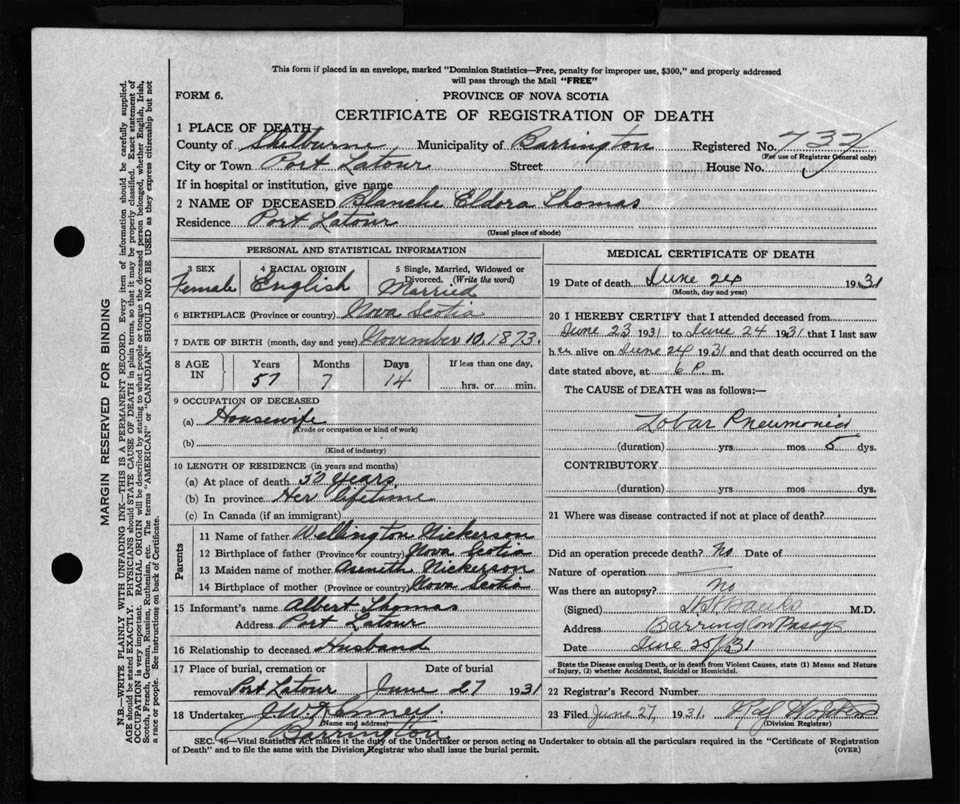 This form if placed in an envelope, marked "Dominion Statistics—Free, penalty for improper use, $300," and properly addressed
will pass through the Mail "FREE"
FORM 6. PROVINCE OF NOVA SCOTIA
CERTIFICATE OF REGISTRATION OF DEATH
1 PLACE OF DEATH
County of Shelburne, Municipality of Barrington Registered No. 732
(For use of Registrar General only)
City or Town Port Latour Street House No.
If in hospital or institution, give name
2 NAME OF DECEASED Blanche Eldora Thomas
Residence Port Latour
(Usual place of abode)
PERSONAL AND STATISTICAL INFORMATION
3 SEX 4 RACIAL ORIGIN 5 Single, Married, Widowed or
Divorced. (Write the word)
Female English Married
6 BIRTHPLACE (Province or country) Nova Scotia
7 DATE OF BIRTH (month, day and year) November 10, 1873.
8 AGE IN Years Months Days If less than one day,
57 7 14 hrs. or min.
9 OCCUPATION OF DECEASED
(a) Housewife
(Trade or occupation or kind of work)
(b)
(Kind of industry)
10 LENGTH OF RESIDENCE (in years and months)
(a) At place of death 50 years.
(b) In province Her lifetime
(c) In Canada (if an immigrant)
Parents
11 Name of father Wellington Nickerson
12 Birthplace of father (Province or country) Nova Scotia
13 Maiden name of mother Aseneth Nickerson
14 Birthplace of mother (Province or country) Nova Scotia
15 Informant's name Albert Thomas
Address Port Latour
16 Relationship to deceased Husband
17 Place of burial, cremation or Date of burial
removal Port Latour June 27 1931
18 Undertaker J. W. Kenney.
(Name and address)
Barrington.
MEDICAL CERTIFICATE OF DEATH
19 Date of death June 24 1931
(Month, day and year)
20 I HEREBY CERTIFY that I attended deceased from
June 23 1931 to June 24 1931 that I last saw
her alive on June 24 1931 and that death occurred on the
date stated above, at 6 P. m.
The CAUSE of DEATH was as follows:—
Lobar Pneumonia
(duration) yrs mos 5 dys.
CONTRIBUTORY
(duration) yrs. mos. dys.
21 Where was disease contracted if not at place of death?
Did an operation precede death? No Date of
Nature of operation —
Was there an autopsy? no
(Signed) Banks M.D.
Address Barrington Passage
Date June 25/31
State the Disease causing Death, or in death from Violent Causes, state (1) Means and Nature
of Injury, (2) whether Accidental, Suicidal or Homicidal.
22 Registrar's Record Number
23 Filed June 27, 1931.
(Division Registrar)
SEC. 46—Vital Statistics Act makes it the duty of the Undertaker or person acting as Undertaker to obtain all the particulars required in the "Certificate of Registration
of Death" and to file the same with the Division Registrar who shall issue the burial permit. (OVER)
MARGIN RESERVED FOR BINDING
N.B.—WRITE PLAINLY WITH UNFADING INK—THIS IS A PERMANENT RECORD. Every item of information should be carefully supplied.
AGE should be stated EXACTLY. PHYSICIANS should STATE CAUSE OF DEATH in plain terms, so that it may be properly classified. Exact statement of
OCCUPATION is very important. RACIAL ORIGIN will be described by stating to what people or tongue the deceased person belonged, whether English, Irish,
Scotch, French, German, Russian, Ruthenian, etc. The terms "AMERICAN" or "CANADIAN" SHOULD NOT BE USED as they express citizenship but not
a race or people. See instructions on back of Certificate.